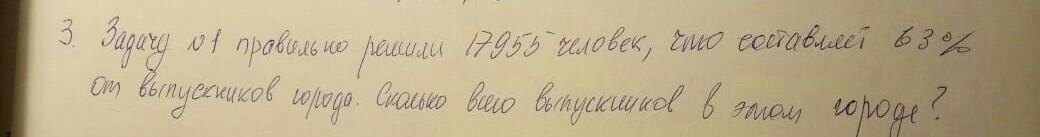 3. Задачу №1 правильно решили 17955 человек, что составляет 63%
от выпускников города. Сколько всего выпускников в этом городе?